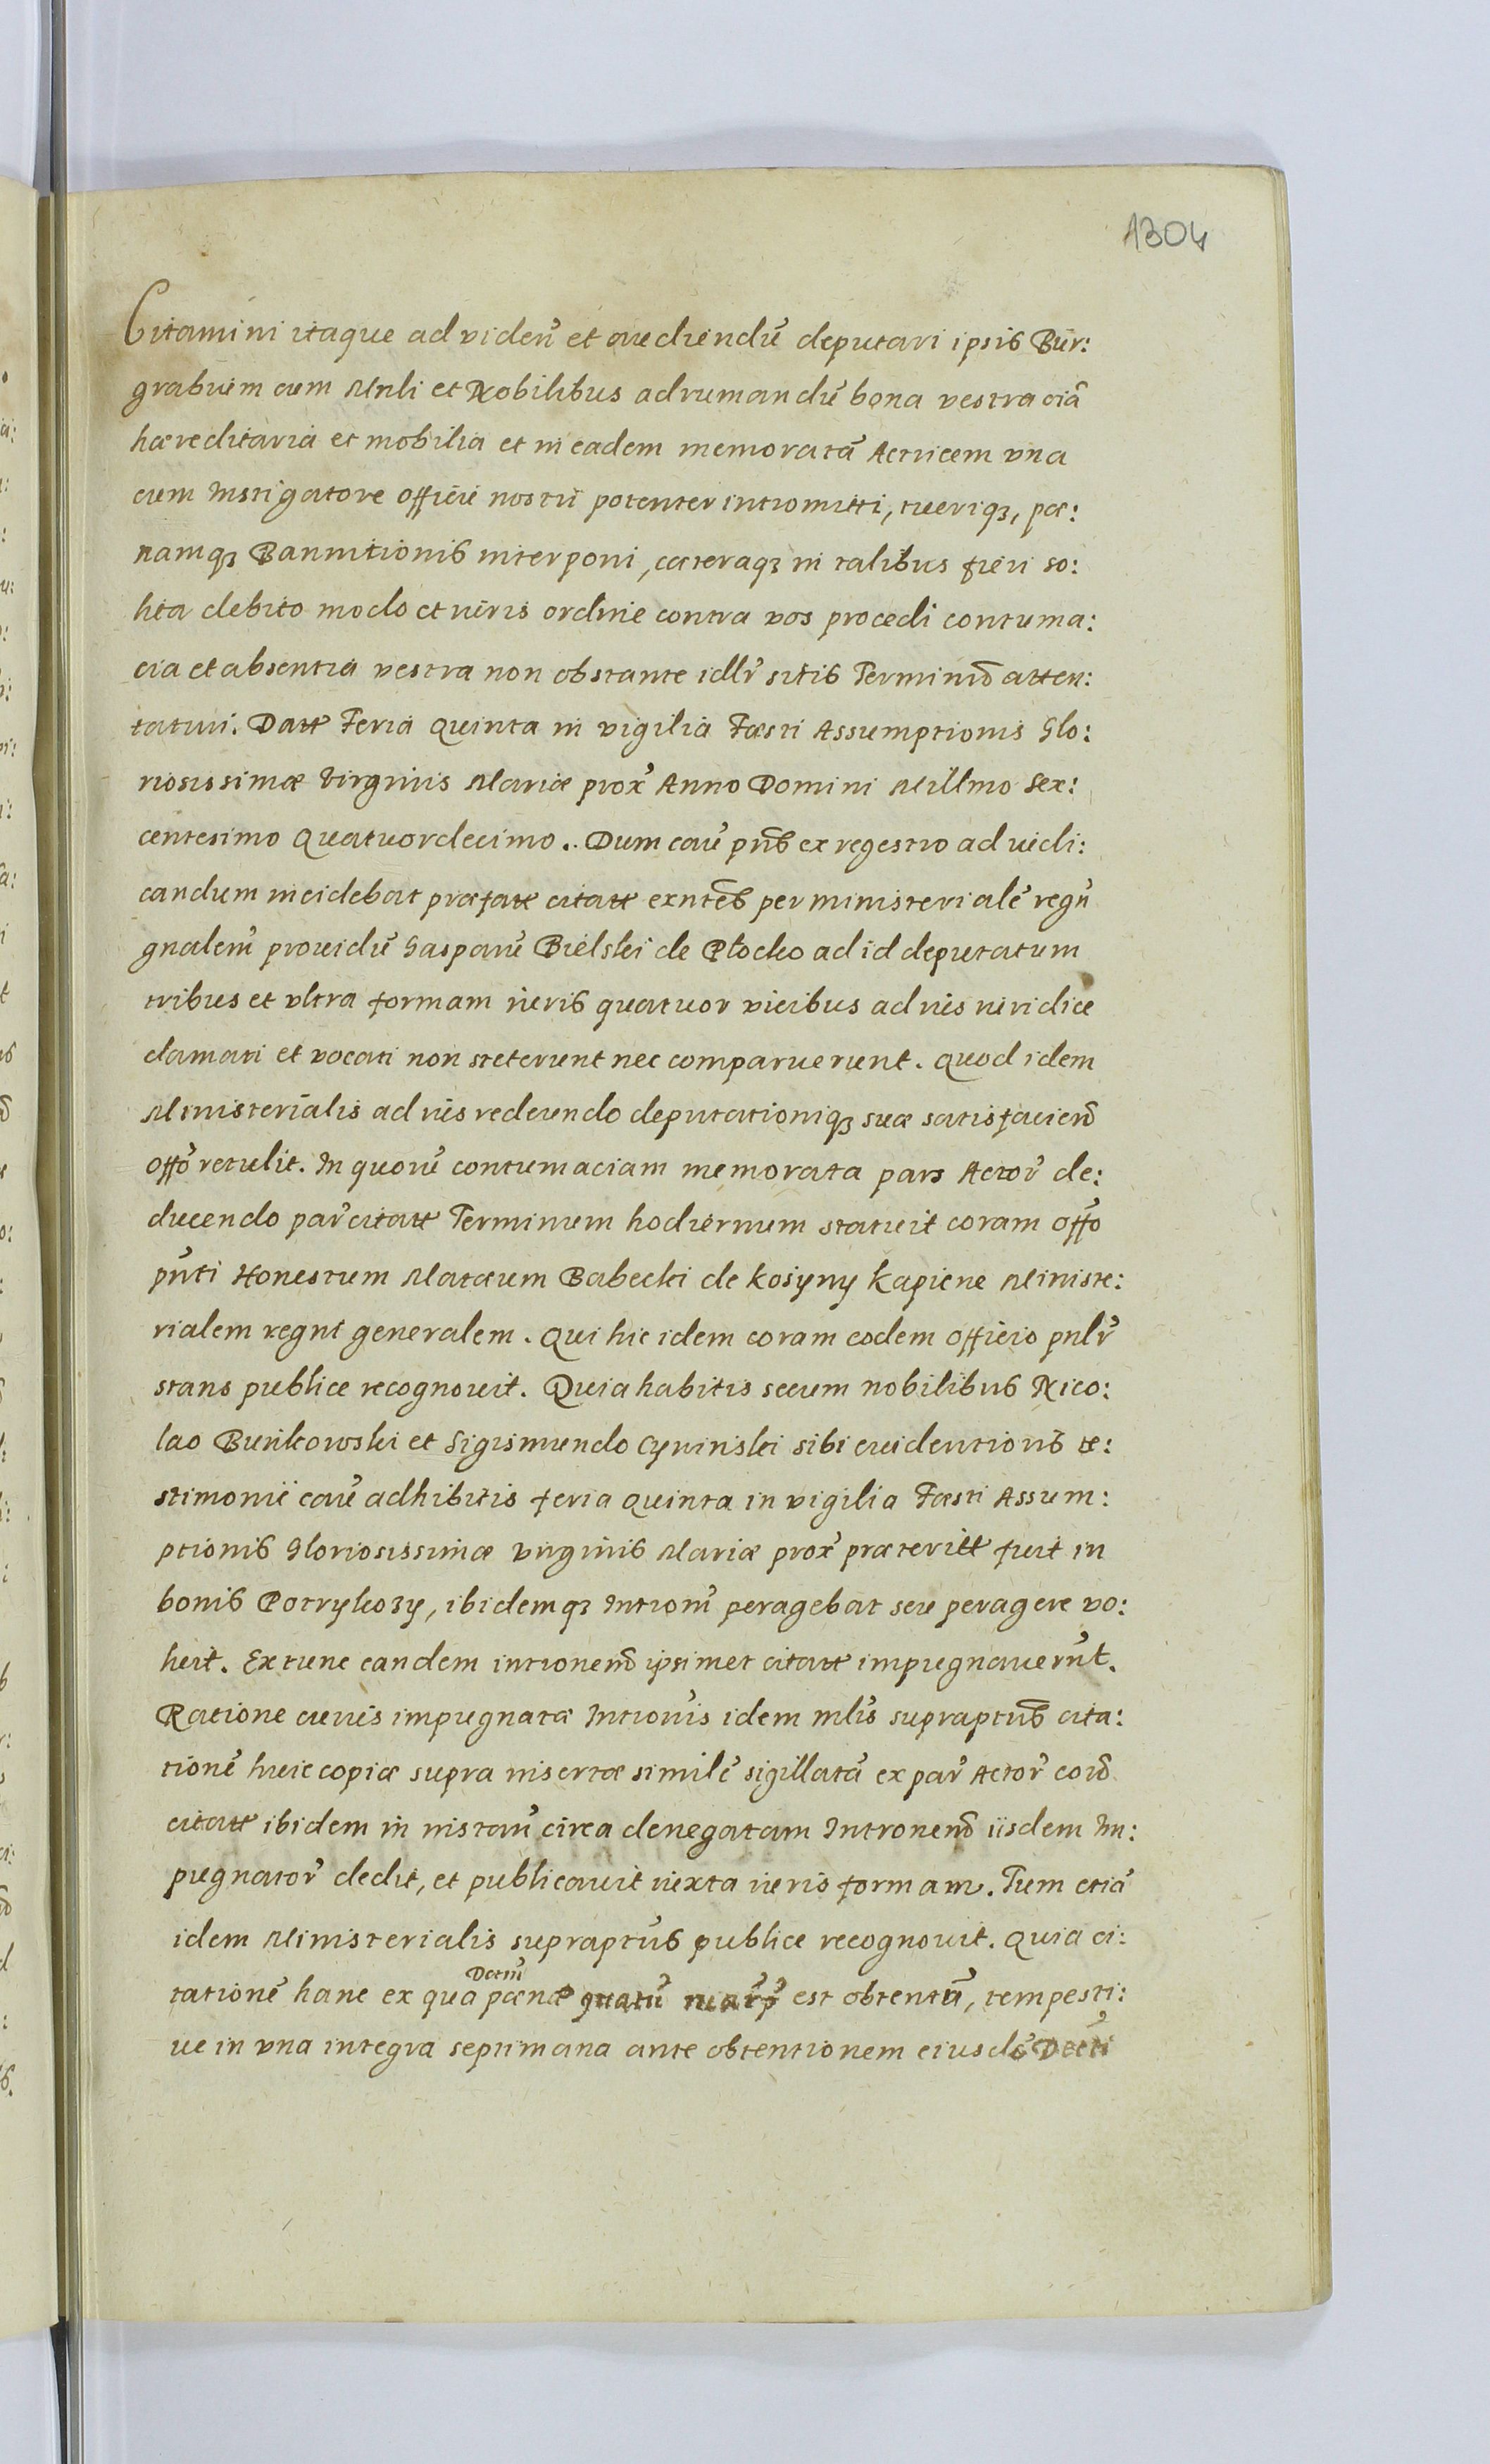 1304
Citamini itaque ad viden̄ et audiendū deputari ipsis Bur:
grabium cum Mnli et Nobilibus ad rumandū bona vestra oīa
hæreditaria et mobilia et in eadem memoratā Actricem vna
cum Instigatore officii nostri potenter intromitti, tueriqꝫ, pæ:
namqꝫ Bannitionis interponi, cæteraqꝫ in talibus fieri so:
lita debito modo et iuris ordine contra vos procedi contuma:
cia et absentia vestra non obstante idlr̄ sitis Terminū atten:
taturi. Datt Feria Quinta in vigilia Fæsti Assumptionis Glo:
riosissimæ Virginis Mariæ prox̄ Anno Domini Millmo Sex:
centesimo Quatuordecimo.. Dum cau̅ pn̄s ex regestro ad iudi:
candum incidebat præfatt citatt exn̄tes per ministerialē regn̄
gnalem̄ prouidū Gasparū Bielski de Plocko ad id deputatum
tribus et vltra formam iuris quatuor vicibus ad ius iuridice
clamati et vocati non steterunt nec comparuerunt. Quod idem
Ministerialis ad ius redeundo deputationiqꝫ suæ satisfaciend̄
offo̅ retulit. In quorū contumaciam memorata pars Actor̄ de:
ducendo par̄ citatt Terminum hodiernum statuit coram offo̅
pn̄ti Honestum Matæum Babecki de Kosyny Kapicne Ministe:
rialem regni generalem. Qui hic idem coram eodem officio pnlr̄
stans publice recognouit. Quia habitis secum nobilibus Nico:
lao Bunkowski et Sigismundo Cyninski sibi euidentioris te:
stimonii cau̅ adhibitis feria Quinta in vigilia Fæsti Assum:
ptionis Gloriosissimæ Virginis Mariæ prox̄ præteritt fuit in
bonis Potrykozy, ibidemqꝫ Introm̄ peragebat seu peragere vo:
luit. Ex tunc eandem intronem̄ ipsimet citatt impugnauerūt.
Ratione cuius impugnatæ Intronis idem mlis̄ supraptus̄ cita:
tionē huic copiæ supra insertæ similē sigillatā ex par̄ Actor̄ coīd
citatt ibidem in instan̄ circa denegatam Intronem̄ iisdem Im:
pugnator̄ dedit, et publicauit iuxta iuris formam. Tum etiā
idem Ministerialis supraptus̄ publice recognouit. Quia ci:
Dectū̄
tationē hanc ex qua pænæ est obtentū, tempesti:
ue in vna integra septimana ante obtentionem eiusdē Decti